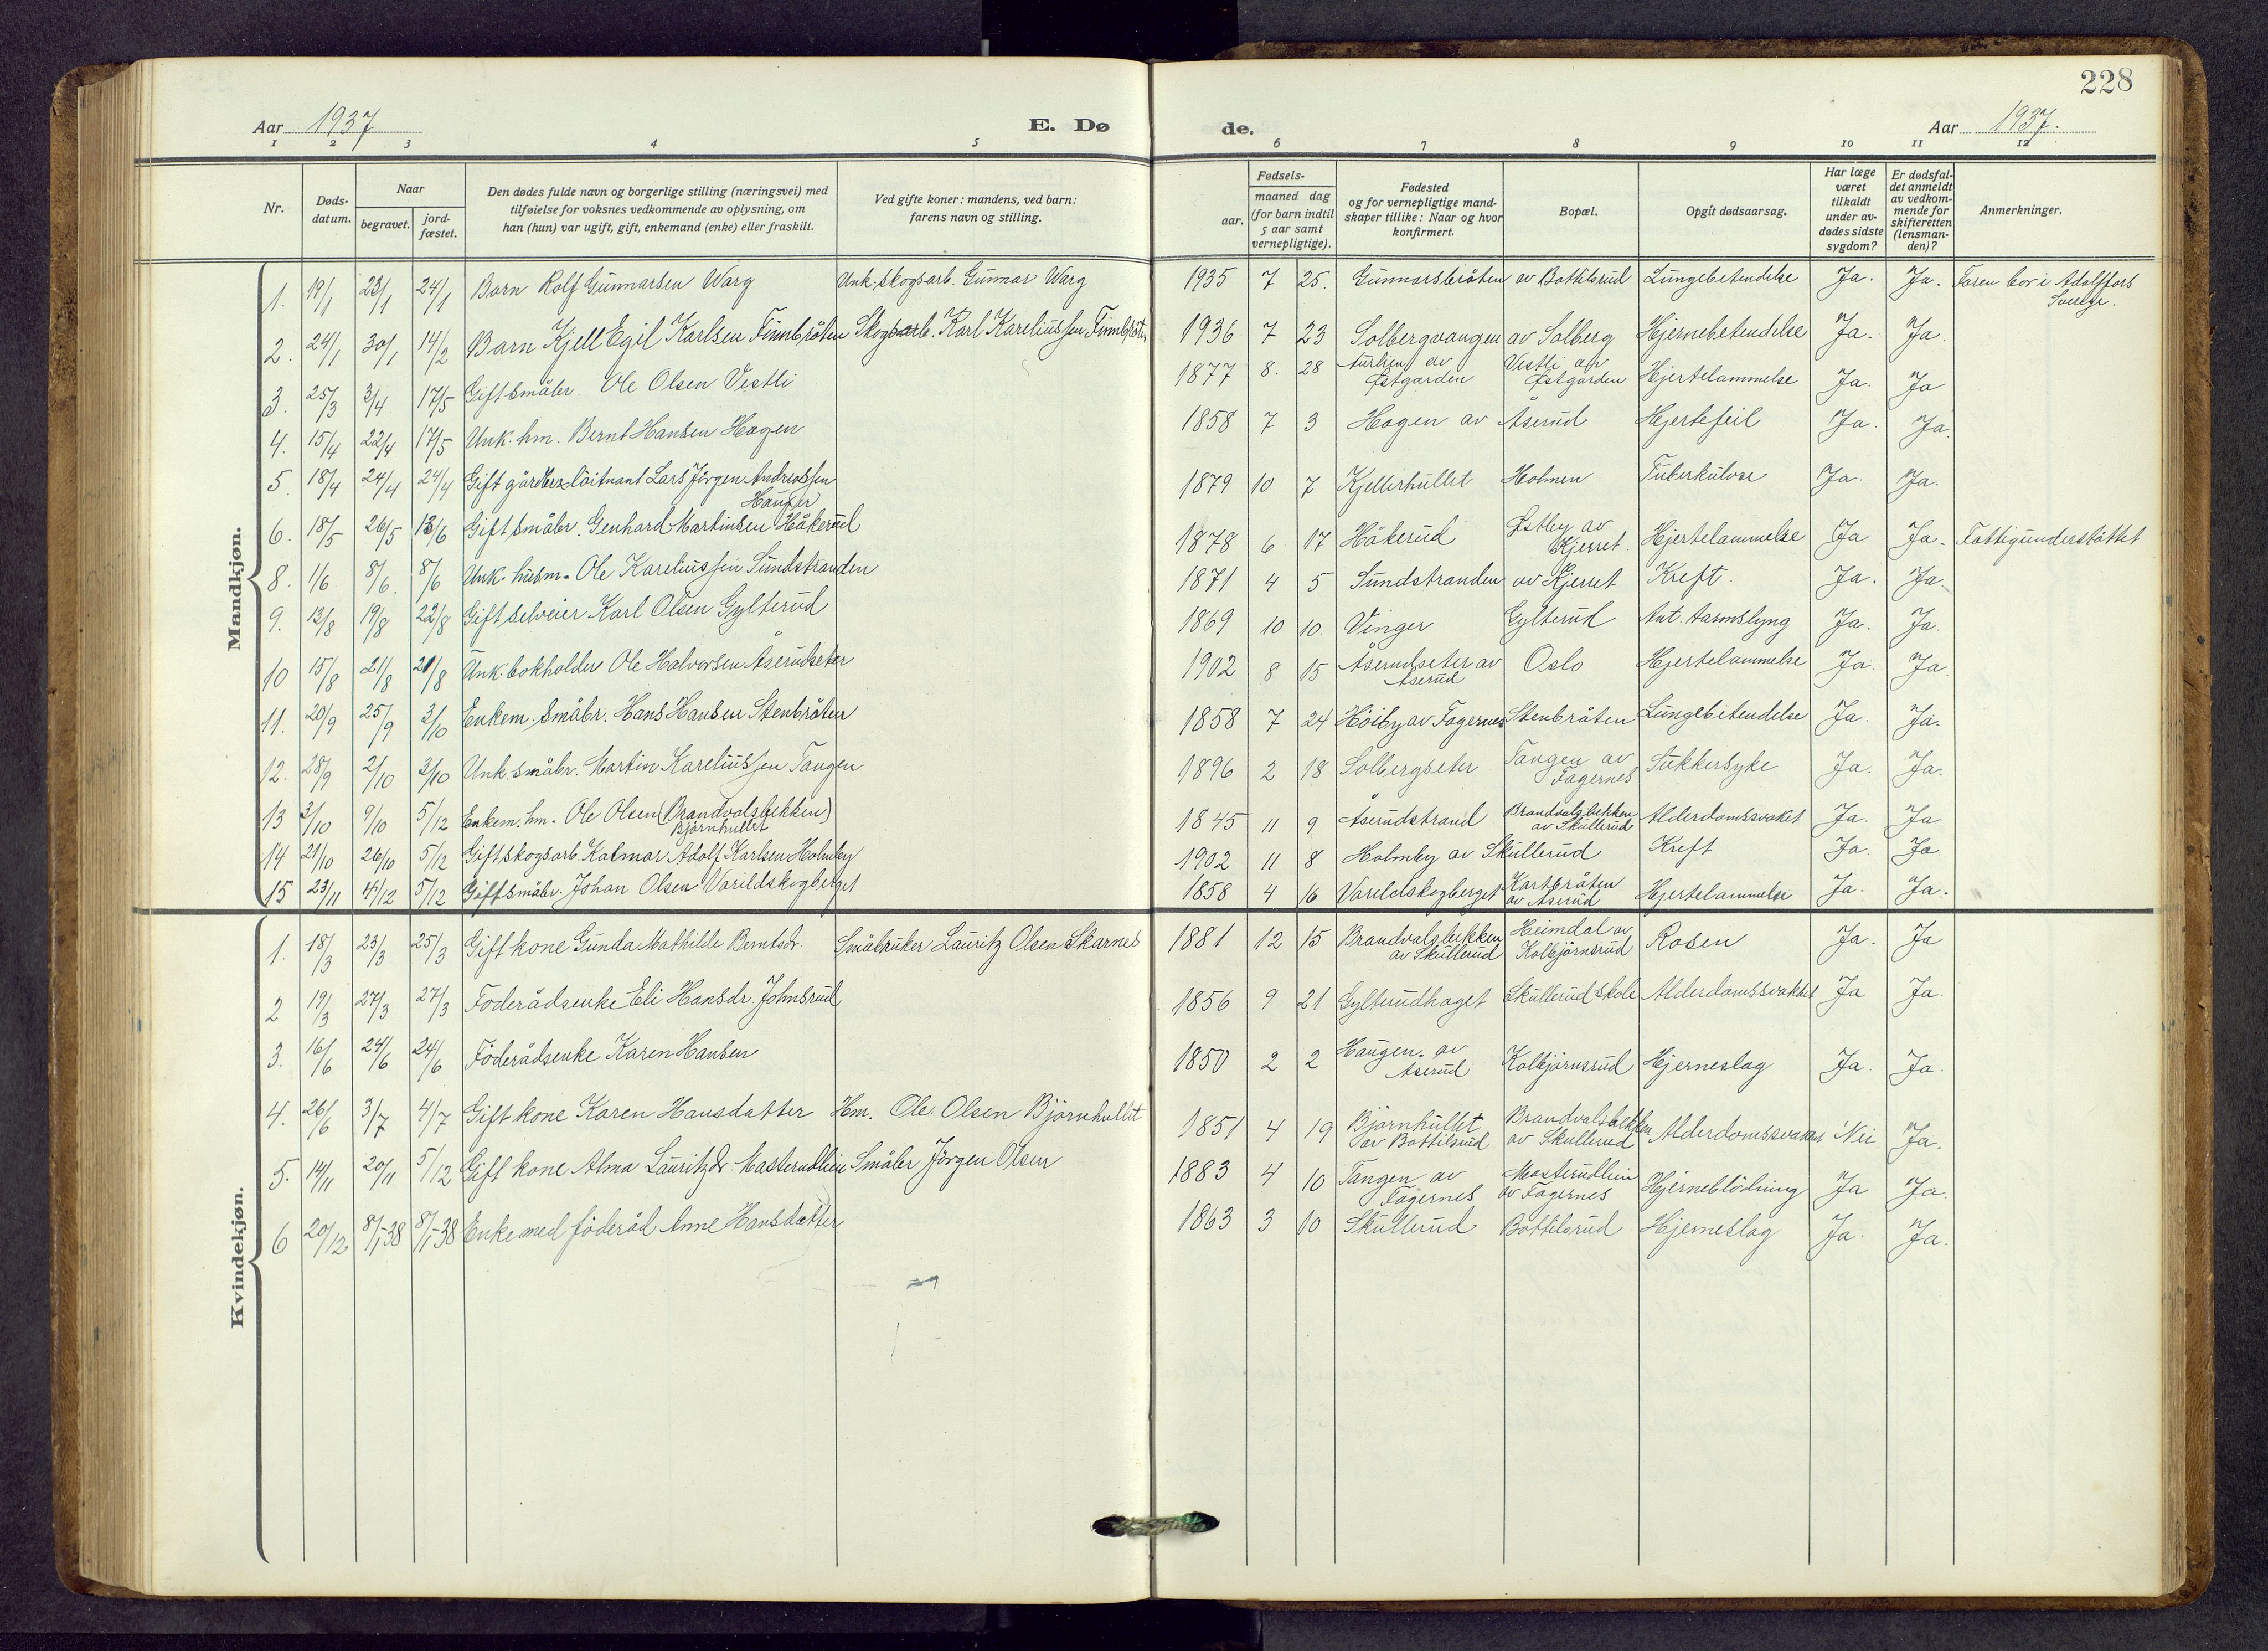 228
Aar 1937 E. Dø de. Aar 1937.
1 2 3 4 5 6 7 8 9 10 11 12
Nr.
Døds-
datum.
Naar
begravet.
jord-
fæstet.
Den dødes fulde navn og borgerlige stilling (næringsvei) med
tilføielse for voksnes vedkommende av oplysning, om
han (hun) var ugift, gift, enkemand (enke) eller fraskilt.
Ved gifte koner: mandens, ved barn:
farens navn og stilling.
Fødsels-
aar. maaned dag
(for barn indtil
5 aar samt
vernepligtige).
Fødested
og for vernepligtige mand-
skaper tillike: Naar og hvor
konfirmert.
Bopæl.
Opgit dødsaarsag.
Har læge
været
tilkaldt
under av-
dødes sidste
sygdom?
Er dødsfal-
det anmeldt
av vedkom-
mende for
skifteretten
(lensman-
den)?
Anmerkninger.
Mandkjøn.
1. 19/1 23/1 24/1 Barn Rolf Gunnarsen Warg Unk. skogsarb. Gunnar Warg 1935 7 25. Gunnarsbråten av Bottilsrud Lungebetendelse Ja. Ja. Faren bor i Adolffors
Sverge.
2. 24/1 30/1 14/2 Barn Kjell Egil Karlsen Finnbråten Skogsarb. Karl Kareliussen Finnbråten 1936 7 23 Solbergvangen av Solberg Hjernebetendelse Ja. Ja.
3. 25/3 3/4 17/5 Gift småbr. Ole Olsen Vestli 1877 8. 28 av Østgarden Vestli av Østgarden Hjertelammelse Ja. Ja
4. 15/4 22/4 17/5 Unk. hm. Bernt Hansen Hagen 1858 7 3 Hagen av Åserud Hjertefeil Ja. Ja.
5. 18/4 24/4 24/4 Gift løitnant Lars Jörgen Andreassen
Hauger 1879 10 7 Kjellerhullet Holmen Tuberkulose Ja. Ja.
6. 18/5 26/5 13/6 Gift småbr. Genhard Martinsen Håkerud 1878 6 17 Håkerud Østby av Kjerret. Hjertelammelse Ja Ja. Fattigunderstöttet
8. 1/6 8/6. 8/6 Unk. husm. Ole Kareliussen Sundstranden 1871 4 5 Sundstranden av Kjerret Kreft. Ja. Ja.
9. 13/8 19/8 22/8 Gift selveier Karl Olsen Gylterud 1869 10 10. Vinger Gylterud Ant. tarmslyng Ja. Ja.
10 15/8 21/8 21/8 Unk. bokholder Ole Halvorsen Åserudseter 1902 8 15 Åserudseter av Åserud Oslo Hjertelammelse Ja. Ja.
11. 20/9 25/9 3/10 Enkem. Småbr. Hans Hansen Stenbråten 1858 7 24 Höiby av Fagernes Stenbråten Lungebetendelse Ja. Ja.
12. 28/9 2/10 3/10 Unk. småbr. Martin Kareliussen Tangen 1896 2 18 Solbergseter Tangen av Fagernes Sukkersyke Ja. Ja.
13 3/10 9/10 5/12 Enkem. hm. Ole Olsen (Brandvalsbekken)
Björnhullet 1845 11 9 Åserudstrand Brandvalsbekken av Skullerud Alderdomssvaket Ja. Ja
14 21/10 26/10 5/12 Gift skogsarb. Kalmar Adolf Karlsen Holmby 1902 11 8 Holmby av Skullerud Kreft Ja. Ja.
15 23/11 4/12 5/12 Gift småbr. Johan Olsen Varildskogberget 1858 4 16 Varildskogberget Kartbråten av Åserud Hjertelammelse Ja. Ja.
Kvindekjøn.
1. 18/3 23/3 25/3 Gift kone Gunda Mathilde Berntsdr. Småbruker Lauritz Olsen Skarnes 1881 12 15 Brandvalsbekken av Skullerud Heimdal av Kolbjörnsrud Rosen Ja. Ja
2 19/3 27/3 27/3 Föderådsenke Eli Hansdr. Johnsrud 1856 9 21 Gylterudhaget Skullerud skole Alderdomssvakket Ja Ja.
3. 16/6 24/6 24/6 Föderådsenke Karen Hansen 1850 2 2 Haugen av Åserud Kolbjörnsrud Hjerneslag Ja. Ja.
4. 26/6 3/7 4/7 Gift kone Karen Hansdatter Hm. Ole Olsen Björnhullet 1851 4 19 Björnhullet av Bottilsrud Brandvalsbekken av Skullerud Nei Ja.
5. 14/11 20/11 5/12 Gift kone Alma Lauritzdr. Masterudlien Småbr Jörgen Olsen 1883 4 10 Tangen av Fagernes Masterudlien av Fagernes Hjerneblödning Ja Ja.
6 20/12 8/1-38 8/1-38 Enke med föderåd Anne Hansdatter 1863 3 10 Skullerud Bottilsrud Hjerneslag Ja. Ja.